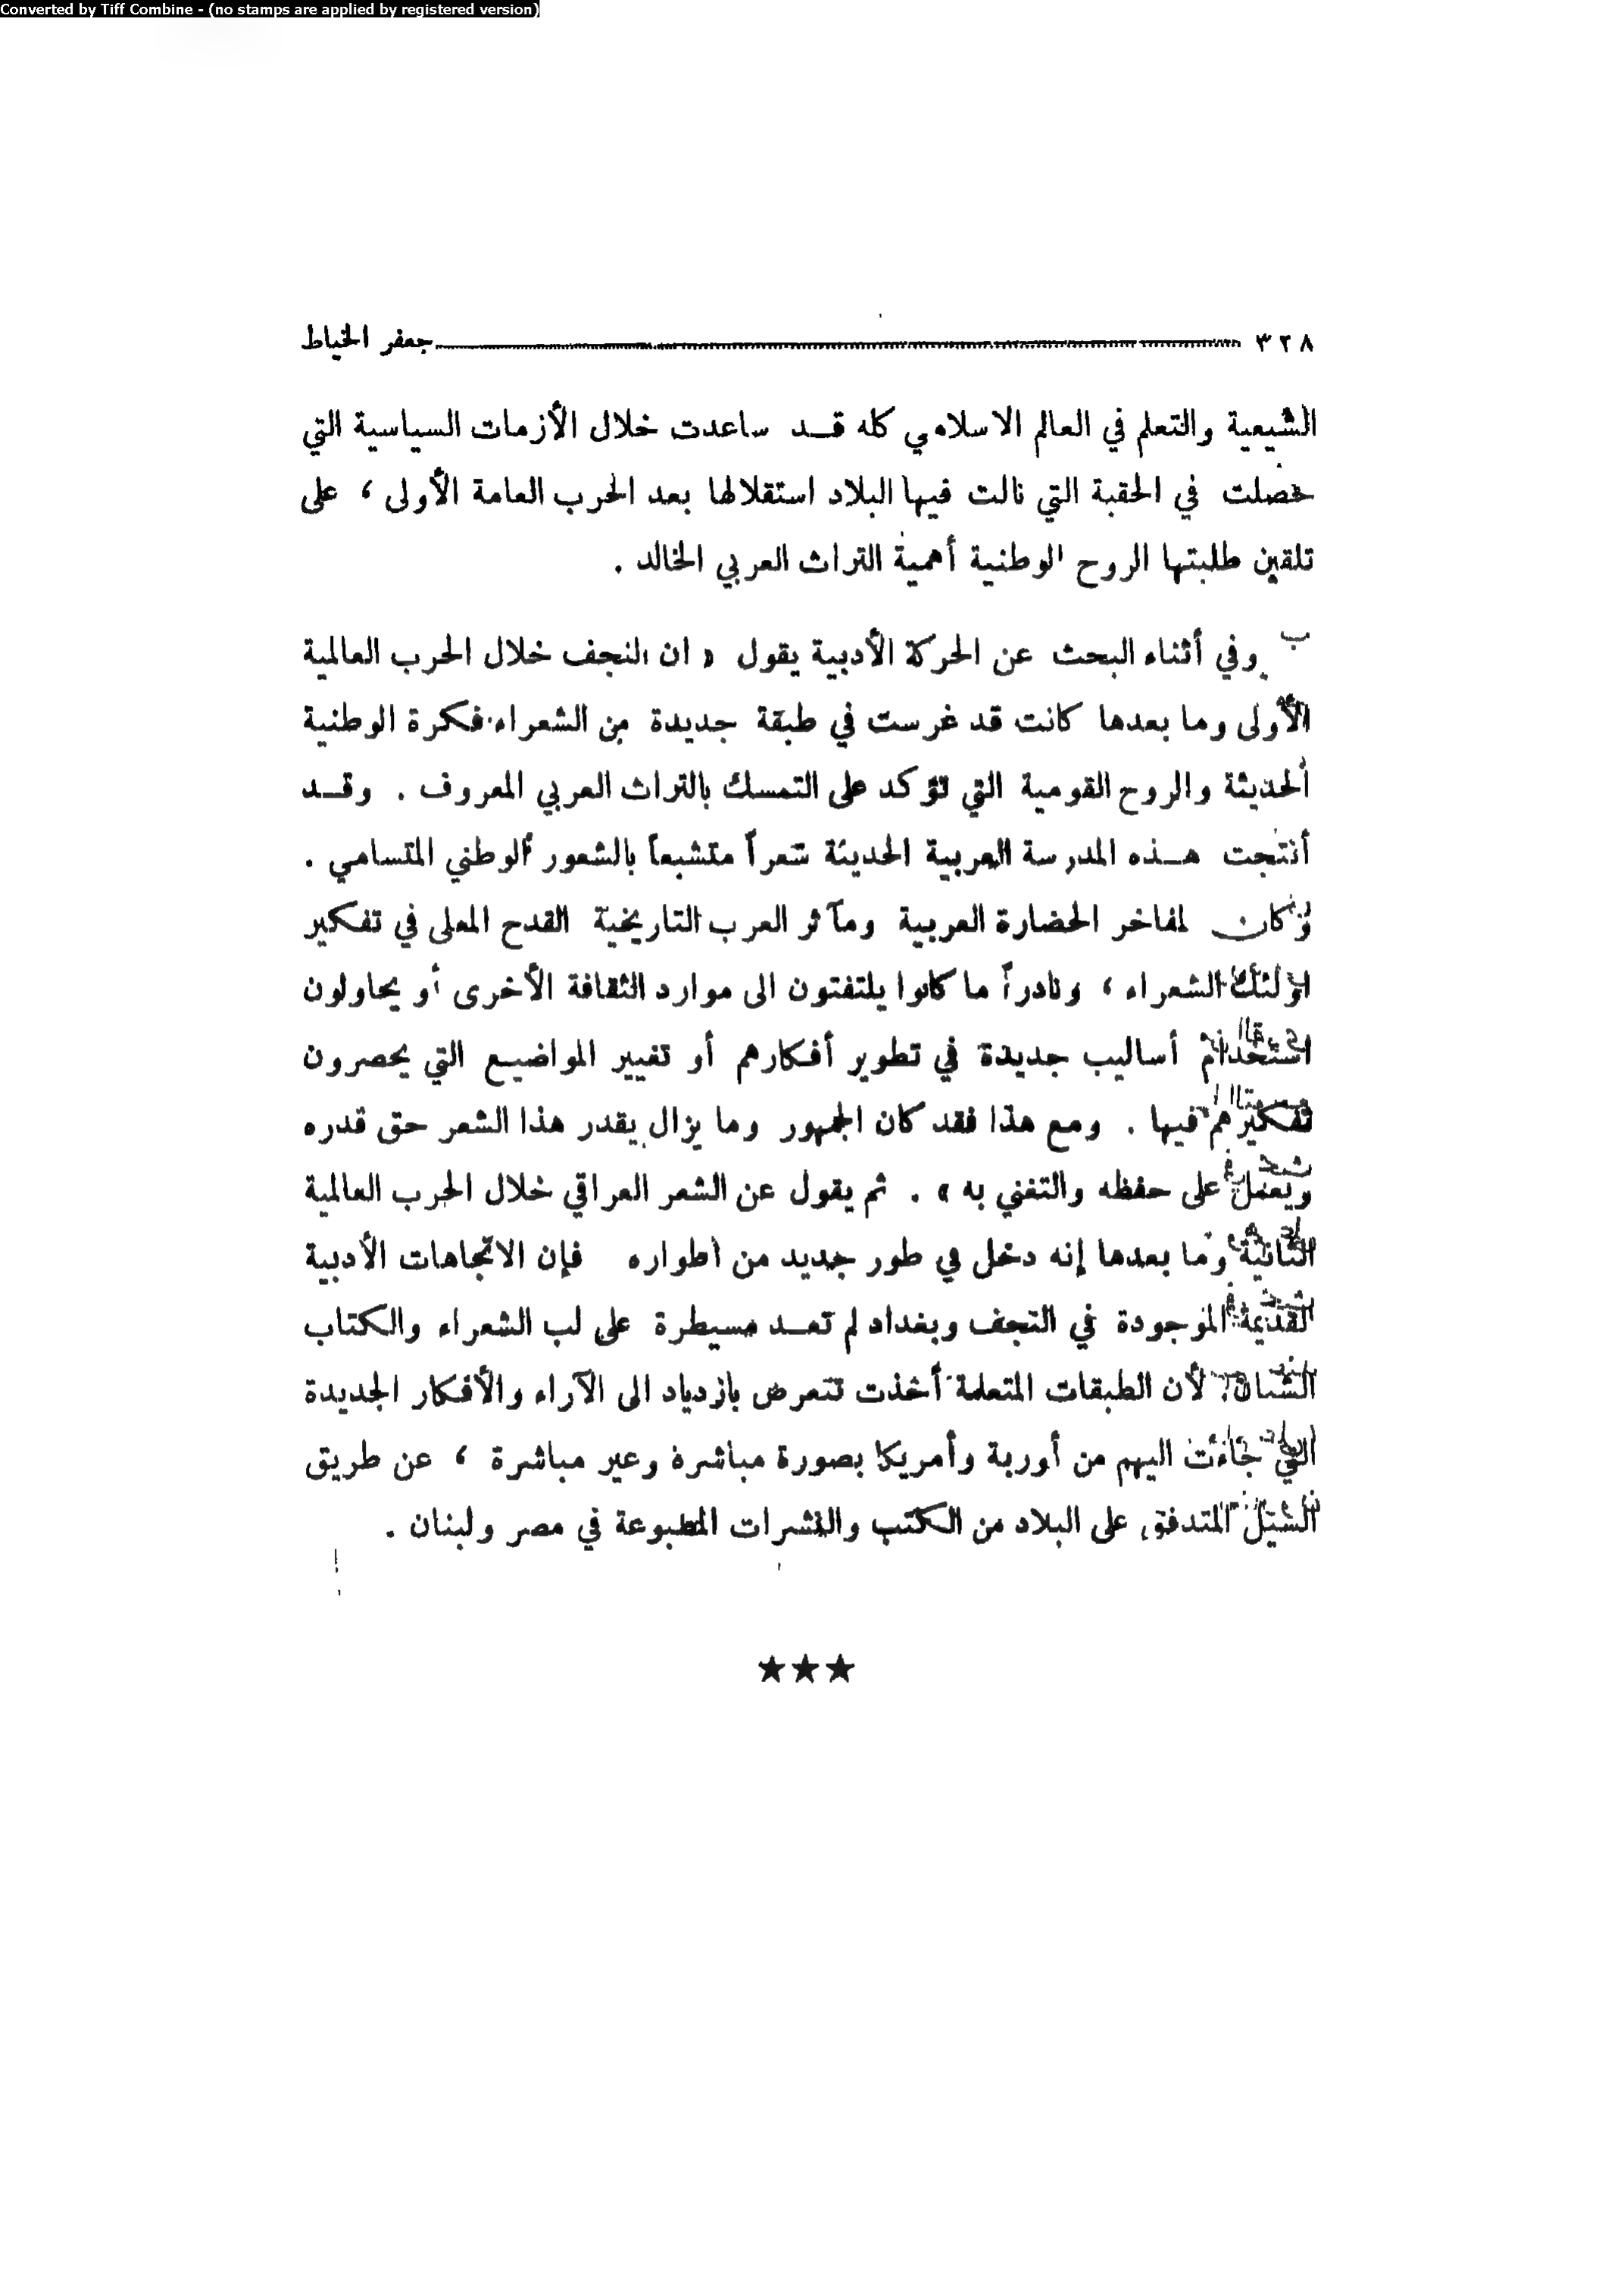 Converted by Tiff Combine - (no stamps are applied by registered version)
٣٢٨ جعفر الخياط
الشيعية والتعلم في العالم الاسلامي كله قـد ساعدت خلال الأزمات السياسية التي
حصلت في الحقبة التي نالت فيها البلاد استقلالها بعد الحرب العامة الأولى ، على
تلقين طلبتها الروح الوطنية أهمية التراث العربي الخالد .
وفي أثناء البحث عن الحركة الأدبية يقول « ان النجف خلال الحرب العالمية
الأولى وما بعدها كانت قد غرست في طبقة جديدة من الشعراء فكرة الوطنية
الحديثة والروح القومية التي تؤكد على التمسك بالتراث العربي المعروف . وقـد
أنتجت هـذه المدرسة العربية الحديثة شعراً متشبعاً بالشعور الوطني المتسامي .
وكان لمفاخر الحضارة العربية ومآثر العرب التاريخية القدح المعلى في تفكير
اولئك الشعراء ، ونادراً ما كانوا يلتفتون الى موارد الثقافة الأخرى أو يحاولون
استخدام أساليب جديدة في تطوير أفكارهم أو تغيير المواضيع التي يحصرون
تفكيرهم فيها . ومع هذا فقد كان الجمهور وما يزال يقدر هذا الشعر حق قدره
ويعمل على حفظه والتغني به » . ثم يقول عن الشعر العراقي خلال الحرب العالمية
الثانية وما بعدها إنه دخل في طور جديد من أطواره فإن الاتجاهات الأدبية
القديمة الموجودة في النجف وبغداد لم تعـد مسيطرة على لب الشعراء والكتاب
الشبان لأن الطبقات المتعلمة أخذت تتعرض بازدياد الى الآراء والأفكار الجديدة
التي جاءت اليهم من أوربة وأمريكا بصورة مباشرة وغير مباشرة ، عن طريق
المتدفق على البلاد من الكتب والنشرات المطبوعة في مصر ولبنان .
★★★